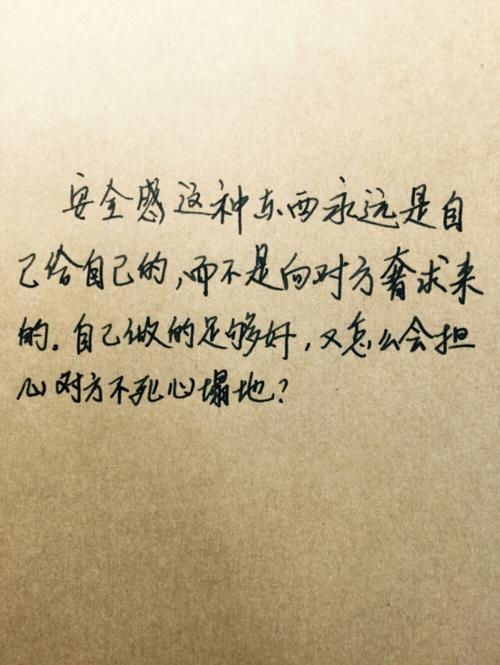 安全感这种东西永远是自
己给自己的,而不是向对方奢求来
的.自己做的足够好,又怎么会担
心对方不死心塌地?